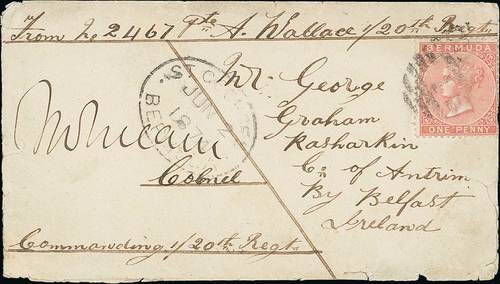 From No 2467 Pte A. Wallace 1/20th Regt
BERMUDA
ONE PENNY
JUN 2
187
Mr. George
Graham
Rasharkin
Co of Antrim
By Belfast
Ireland
Colonel
Commanding 1/20th Regt